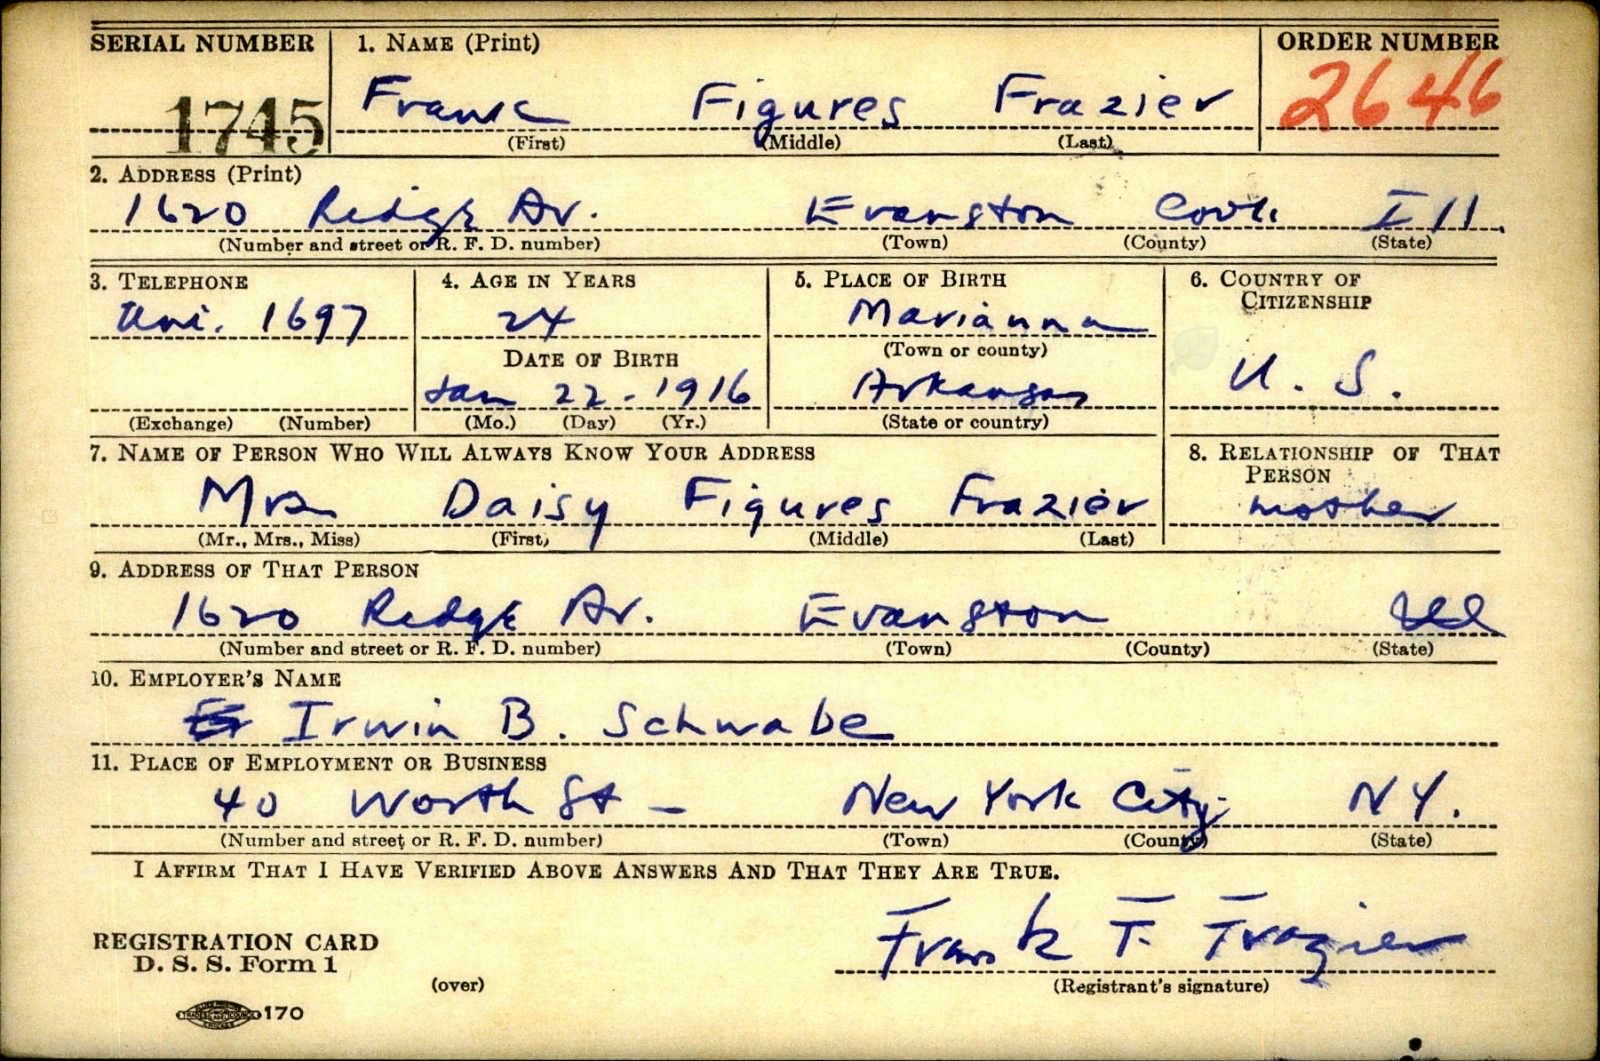 SERIAL NUMBER 1. NAME (Print) ORDER NUMBER
1745 Frank Figures Frazier 2646
(First) (Middle) (Last)
2. ADDRESS (Print)
1620 Ridge Av. Evanston Cook Ill.
(Number and street or R. F. D. number) (Town) (County) (State)
3. TELEPHONE 4. AGE IN YEARS 5. PLACE OF BIRTH 6. COUNTRY OF CITIZENSHIP
Uni. 1697 24 Marianna
(Town or county)
DATE OF BIRTH
Jan 22 - 1916 Arkansas U. S.
(Exchange) (Number) (Mo.) (Day) (Yr.) (State or country)
7. NAME OF PERSON WHO WILL ALWAYS KNOW YOUR ADDRESS 8. RELATIONSHIP OF THAT PERSON
Mrs Daisy Figures Frazier mother
(Mr., Mrs., Miss) (First) (Middle) (Last)
9. ADDRESS OF THAT PERSON
1620 Ridge Av. Evanston Ill
(Number and street or R. F. D. number) (Town) (County) (State)
10. EMPLOYER'S NAME
Irwin B. Schwabe
11. PLACE OF EMPLOYMENT OR BUSINESS
40 Worth St - New York City NY.
(Number and street or R. F. D. number) (Town) (County) (State)
I AFFIRM THAT I HAVE VERIFIED ABOVE ANSWERS AND THAT THEY ARE TRUE.
REGISTRATION CARD
D. S. S. Form 1
Frank F. Frazier
(over) (Registrant's signature)
170